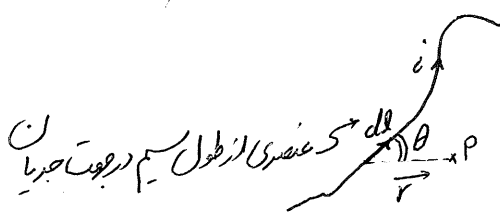 i
dl → عنصری از طول سیم در جهت جریان
θ
P
r